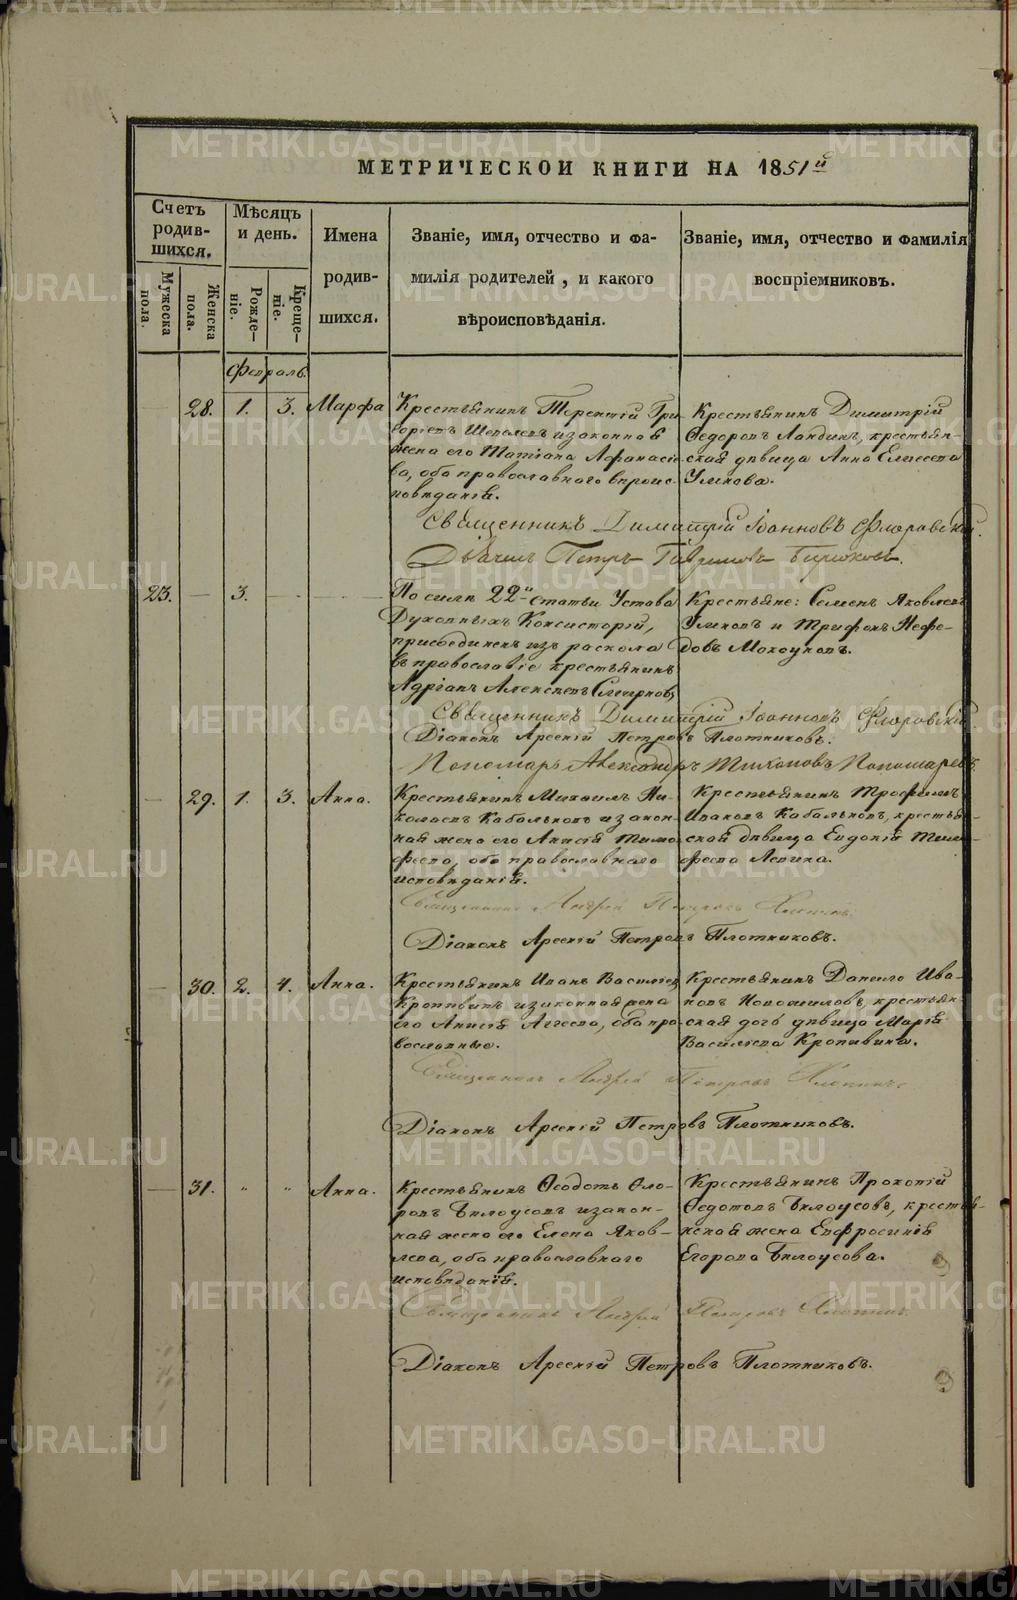 МЕТРИЧЕСКОЙ КНИГИ НА 1851й
Счетъ родив-шихся.
Мужеска пола.
Женска пола.
Мѣсяцъ и день.
Рожде-ніе.
Креще-ніе.
Имена
родив-
шихся.
Званіе, имя, отчество и фа-
милія родителей, и какого
вѣроисповѣданія.
Званіе, имя, отчество и фамилія
воспріемниковъ.
Февраль.
28. 1. 3. Марфа
Крестьянинъ Терентій Гри-
горьевъ Шевелевъ и законная
жена его Татіана Афанасіе-
ва, оба православнаго вѣроис-
повѣданія.
Крестьянинъ Димитрій
Ѳедоровъ Ландинъ, крестьян-
ская дѣвица Анна Елисеева
Уликова.
Священникъ Димитрій Іоанновъ Флоровскій.
Дьячекъ Петръ Гавриловъ Бирюковъ.
23. — 3.
По силѣ 22й статьи Устава
Духовныхъ Консисторій,
присоединенъ изъ раскола
въ православіе крестьянинъ
Адріанъ Алексѣевъ Смирновъ,
Крестьяне: Семенъ Яковлевъ
Уликовъ и Трифонъ Нефе-
довъ Мокоуховъ.
Священникъ Димитрій Іоанновъ Флоровскій
Діаконъ Арсеній Петровъ Плотниковъ.
Пономарь Александръ Тихоновъ Пономаревъ.
— 29. 1. 3. Анна.
Крестьянинъ Михаилъ Ни-
колаевъ Кабальновъ и закон-
ная жена его Анисія Тимо-
феева, оба православнаго
исповѣданія.
Крестьянинъ Трофимъ
Ивановъ Кабальновъ, крестьян-
ской дѣвица Евдокія Тимо-
феева Лепина.
Священникъ Андрей Петровъ
Діаконъ Арсеній Петровъ Плотниковъ.
— 30. 2. 4. Анна.
Крестьянинъ Иванъ Василіев
Кропивинъ, и законная жена
его Анисія Аггеева, оба пра-
вославные.
Крестьянинъ Данило Ива-
новъ Новожиловъ, крестьян-
ская дочь дѣвица Марія
Василіева Кропивина.
Священникъ Андрей Петровъ
Діаконъ Арсеній Петровъ Плотниковъ.
— 31. " " Анна.
Крестьянинъ Ѳеодотъ Фло-
ровъ Бѣлоусовъ и закон-
ная жена его Елена Яков-
лева, оба православнаго
исповѣданія.
Крестьянинъ Прокопій
Ѳедотовъ Бѣлоусовъ, крестья-
нская жена Евфросинія
Егорова Бѣлоусова.
Священникъ Андрей Петровъ
Діаконъ Арсеній Петровъ Плотниковъ.
METRIKI.GASO-URAL.RU